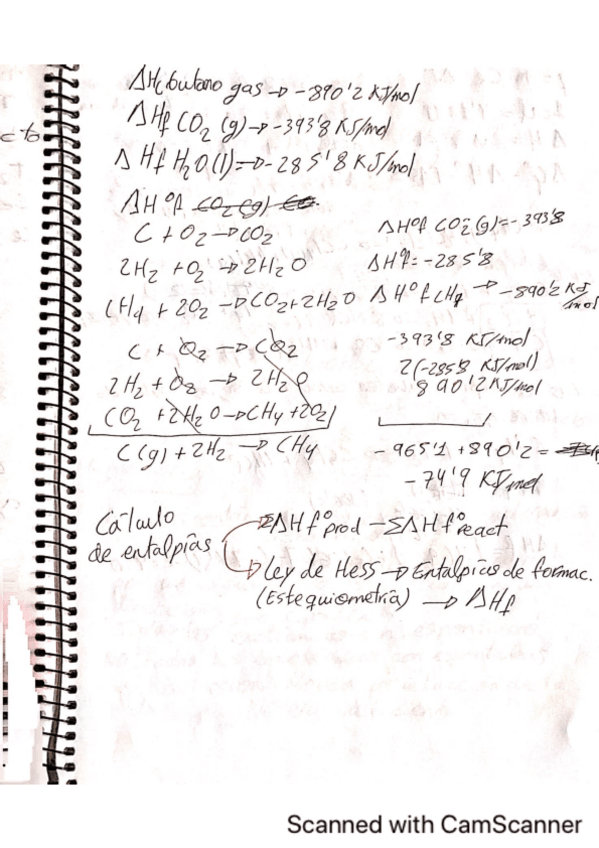 ΔHc butano gas → -890'2 KJ/mol
ΔHf CO2 (g) → -393'8 KJ/mol
ΔHf H2O(l) = → -285'8 KJ/mol
ΔHºf CO2(g)
C + O2 → CO2 ΔHºf CO2(g) = -393'8
2H2 + O2 → 2H2O ΔHºf = -285'8
CH4 + 2O2 → CO2 + 2H2O ΔHºf CH4 → -890'2 KJ/mol
C + O2 → CO2 -393'8 KJ/mol
2H2 + O2 → 2H2O 2(-285'8 KJ/mol)
CO2 + 2H2O → CH4 + 2O2 890'2 KJ/mol
C(g) + 2H2 → CH4 -965'1 + 890'2 =
-74'9 KJ/mol
Cálculo
de entalpías
ΣΔHfº prod - ΣΔHfº react
Ley de Hess → Entalpias de formac.
(Estequiometría) → ΔHf
cto
Scanned with CamScanner